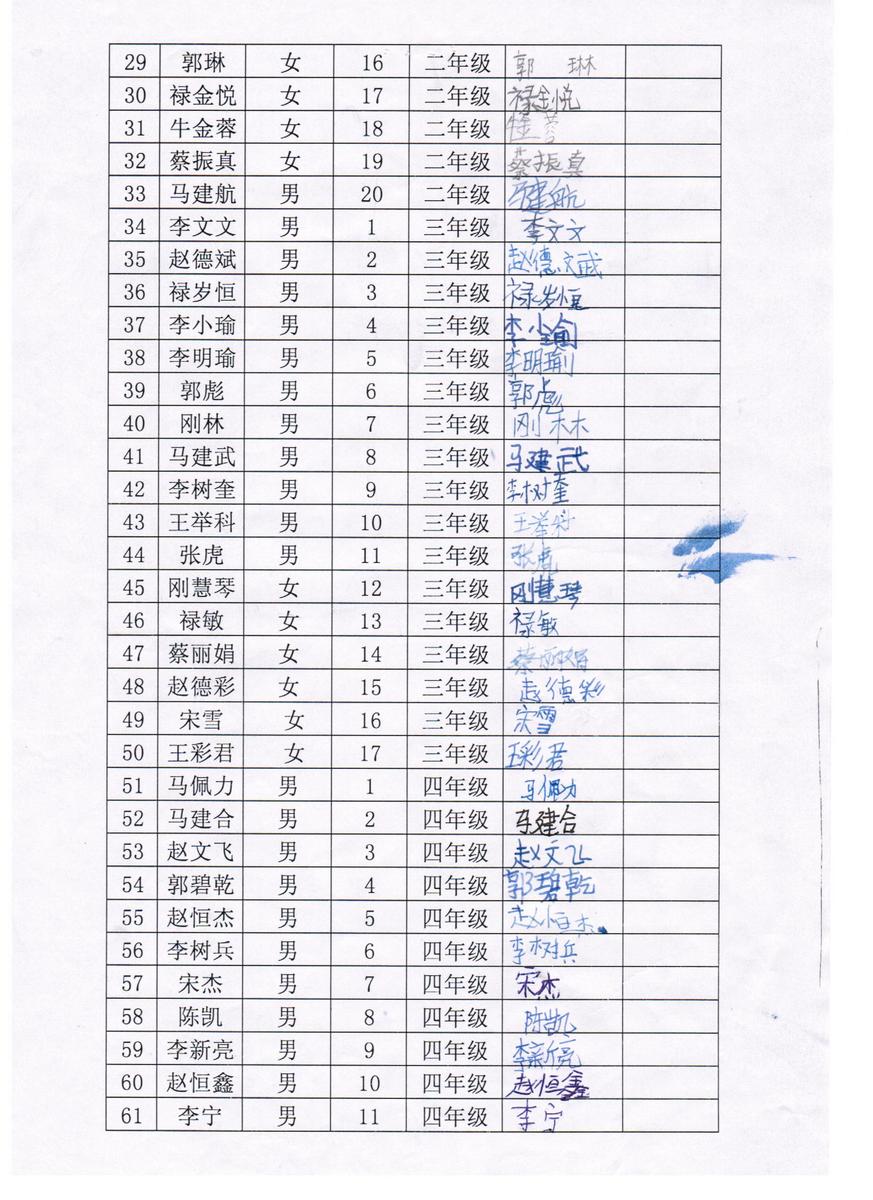 29 郭琳 女 16 二年级 郭 琳
30 禄金悦 女 17 二年级 禄金悦
31 牛金蓉 女 18 二年级
32 蔡振真 女 19 二年级 蔡振真
33 马建航 男 20 二年级 马建航
34 李文文 男 1 三年级 李文文
35 赵德斌 男 2 三年级 赵德斌
36 禄岁恒 男 3 三年级 禄岁恒
37 李小瑜 男 4 三年级 李小瑜
38 李明瑜 男 5 三年级 李明瑜
39 郭彪 男 6 三年级 郭彪
40 刚林 男 7 三年级 刚林
41 马建武 男 8 三年级 马建武
42 李树奎 男 9 三年级 李树奎
43 王举科 男 10 三年级 王举科
44 张虎 男 11 三年级 张虎
45 刚慧琴 女 12 三年级 刚慧琴
46 禄敏 女 13 三年级 禄敏
47 蔡丽娟 女 14 三年级 蔡丽娟
48 赵德彩 女 15 三年级 赵德彩
49 宋雪 女 16 三年级 宋雪
50 王彩君 女 17 三年级 王彩君
51 马佩力 男 1 四年级 马佩力
52 马建合 男 2 四年级 马建合
53 赵文飞 男 3 四年级 赵文飞
54 郭碧乾 男 4 四年级 郭碧乾
55 赵恒杰 男 5 四年级 赵恒杰
56 李树兵 男 6 四年级 李树兵
57 宋杰 男 7 四年级 宋杰
58 陈凯 男 8 四年级 陈凯
59 李新亮 男 9 四年级 李新亮
60 赵恒鑫 男 10 四年级 赵恒鑫
61 李宁 男 11 四年级 李宁